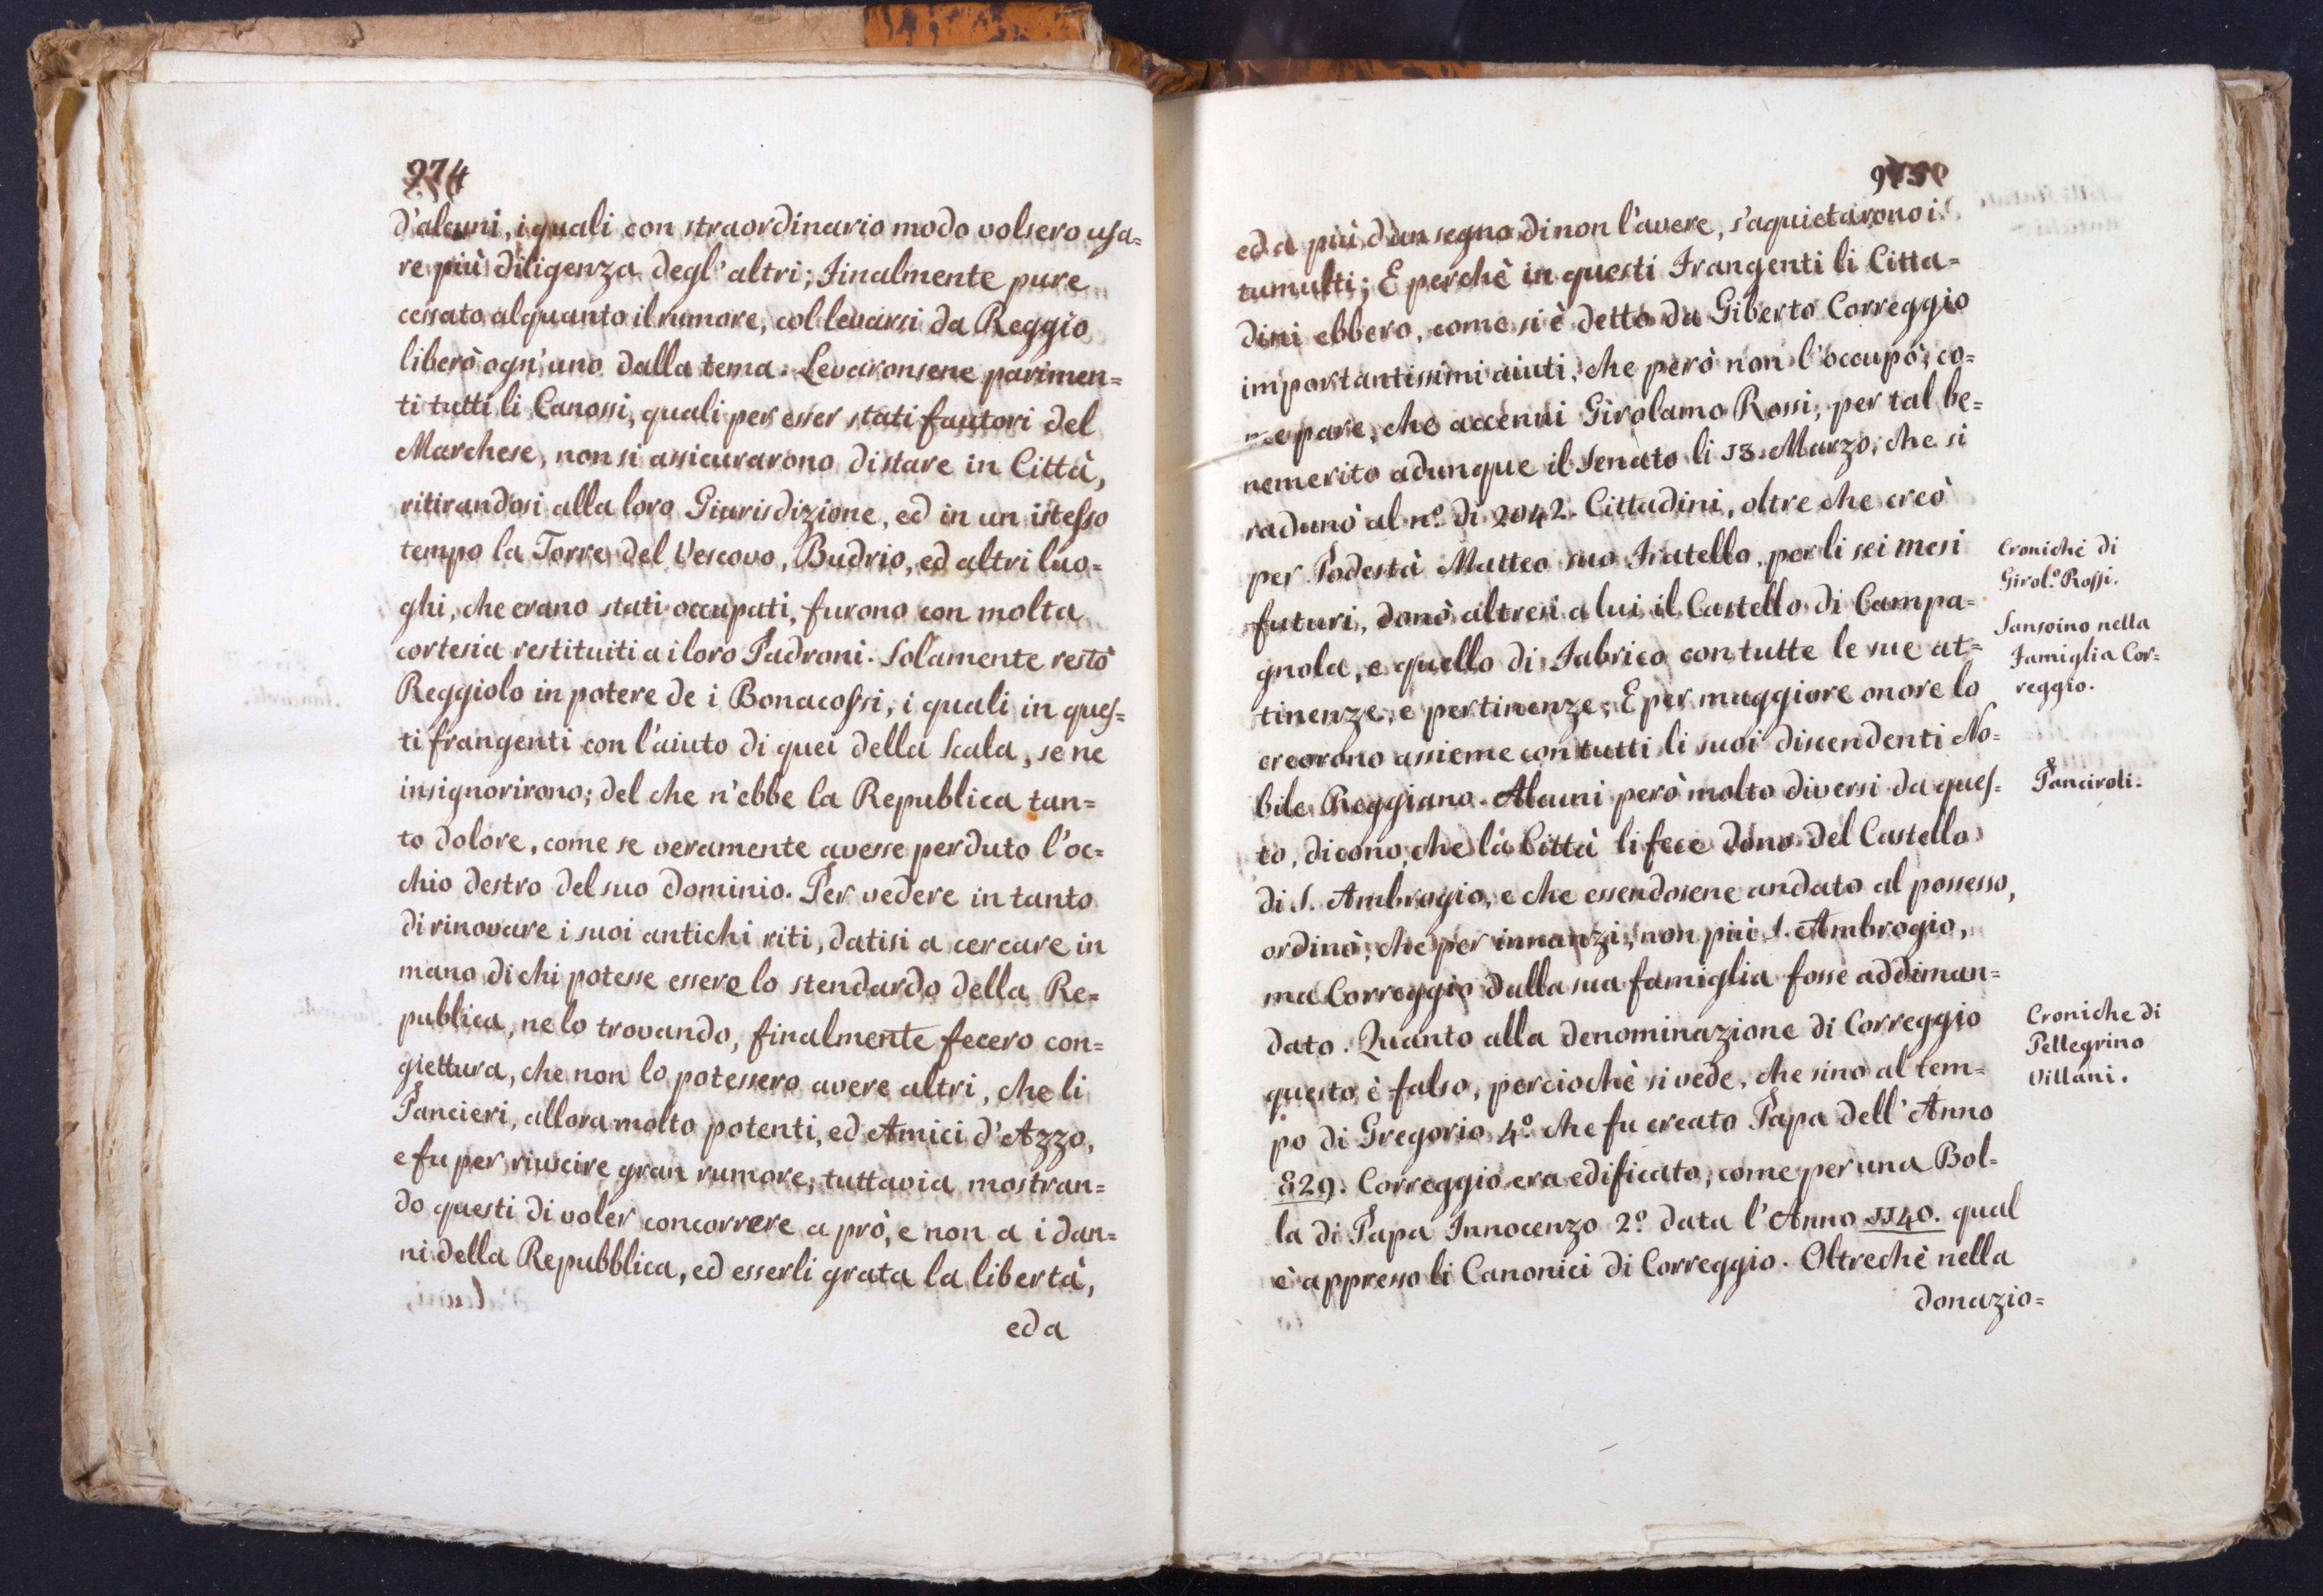 974
d'alcuni, i quali con straordinario modo volsero usa=
re più diligenza degl'altri; Finalmente pure
cessato alquanto il rumore, col levarsi da Reggio
liberò ogn'uno dalla tema. Levaronsene parimen=
ti tutti li Canossi, quali per esser stati fautori del
Marchese, non si assicurarono di stare in Città,
ritirandosi alla loro Giurisdizione, ed in un istesso
tempo la Torre del Vescovo, Budrio, ed altri luo=
ghi, che erano stati occupati, furono con molta
cortesia restituiti a i loro Padroni. Solamente restò
Reggiolo in potere de i Bonacossi, i quali in ques=
ti frangenti con l'aiuto di quei della Scala, se ne
insignorirono; del che n'ebbe la Republica tan=
to dolore, come se veramente avesse perduto l'oc=
chio destro del suo dominio. Per vedere in tanto
di rinovare i suoi antichi riti, datisi a cercare in
mano di chi potesse essere lo stendardo della Re=
publica, ne lo trovando, finalmente fecero con=
giettura, che non lo potessero avere altri, che li
Pancieri, allora molto potenti, ed Amici d'Azzo,
e fu per riuscire gran rumore, tuttavia mostran=
do questi di voler concorrere a prò, e non a i dan=
ni della Repubblica, ed esserli grata la libertà,
ed a
975
ed a più d'un segno di non l'avere, s'aquietarono i
tumulti; E perchè in questi Frangenti li Citta=
dini ebbero, come si è detto da Giberto Correggio
importantissimi aiuti, che però non l'occupò, co=
me pare, che accenni Girolamo Rossi, per tal be=
nemerito adunque il Senato li 13. Marzo, che si
radunò al n.º di 2042. Cittadini, oltre che creò
per Podestà Matteo suo Fratello, per li sei mesi
futuri, donò altresi a lui il Castello di Campa=
gnola, e quello di Fabrico con tutte le sue at=
tinenze, e pertinenze; E per maggiore onore lo
creorono assieme con tutti li suoi discendenti No=
bile Reggiano. Alcuni però molto diversi da ques=
to, dicono, che la Città li fece dono del Castello
di S. Ambrogio, e che essendosene andato al possesso,
ordinò, che per innanzi, non più S. Ambrogio,
ma Correggio dalla sua famiglia fosse addiman=
dato. Quanto alla denominazione di Correggio
questo è falso, perciochè si vede, che sino al tem=
po di Gregorio 4.º che fu creato Papa dell'Anno
829. Correggio era edificato, come per una Bol=
la di Papa Innocenzo 2.º data l'Anno 1140. qual
è appresso li Canonici di Correggio. Oltrechè nella
donazio=
Croniche di
Girol.º Rossi.
Sansoino nella
Famiglia Cor=
reggio.
Panciroli.
Croniche di
Pellegrino
Villani.